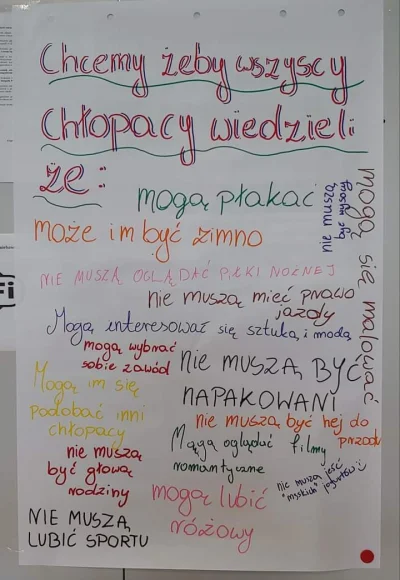 Chcemy żeby wszyscy
chłopacy wiedzieli
że:
mogą płakać
nie muszą
być wysocy
mogą się malować
może im być zimno
NIE MUSZĄ OGLĄDAĆ PIŁKI NOŻNEJ
nie muszą mieć prawo
jazdy
Mogą interesować się sztuką i modą
mogą wybrać
sobie zawód
NIE MUSZĄ BYĆ
NAPAKOWANI
Mogą im się
podobać inni
chłopacy
nie muszą być hej do
przodu
Mogą oglądać filmy
romantyczne
nie muszą
być głową
rodziny
nie muszą jeść
"męskich" jogurtów :)
mogą lubić
różowy
NIE MUSZĄ
LUBIĆ SPORTU
Fi